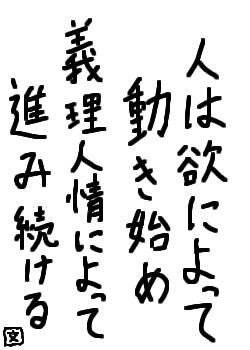 人は欲によって
動き始め
義理人情によって
進み続ける
文